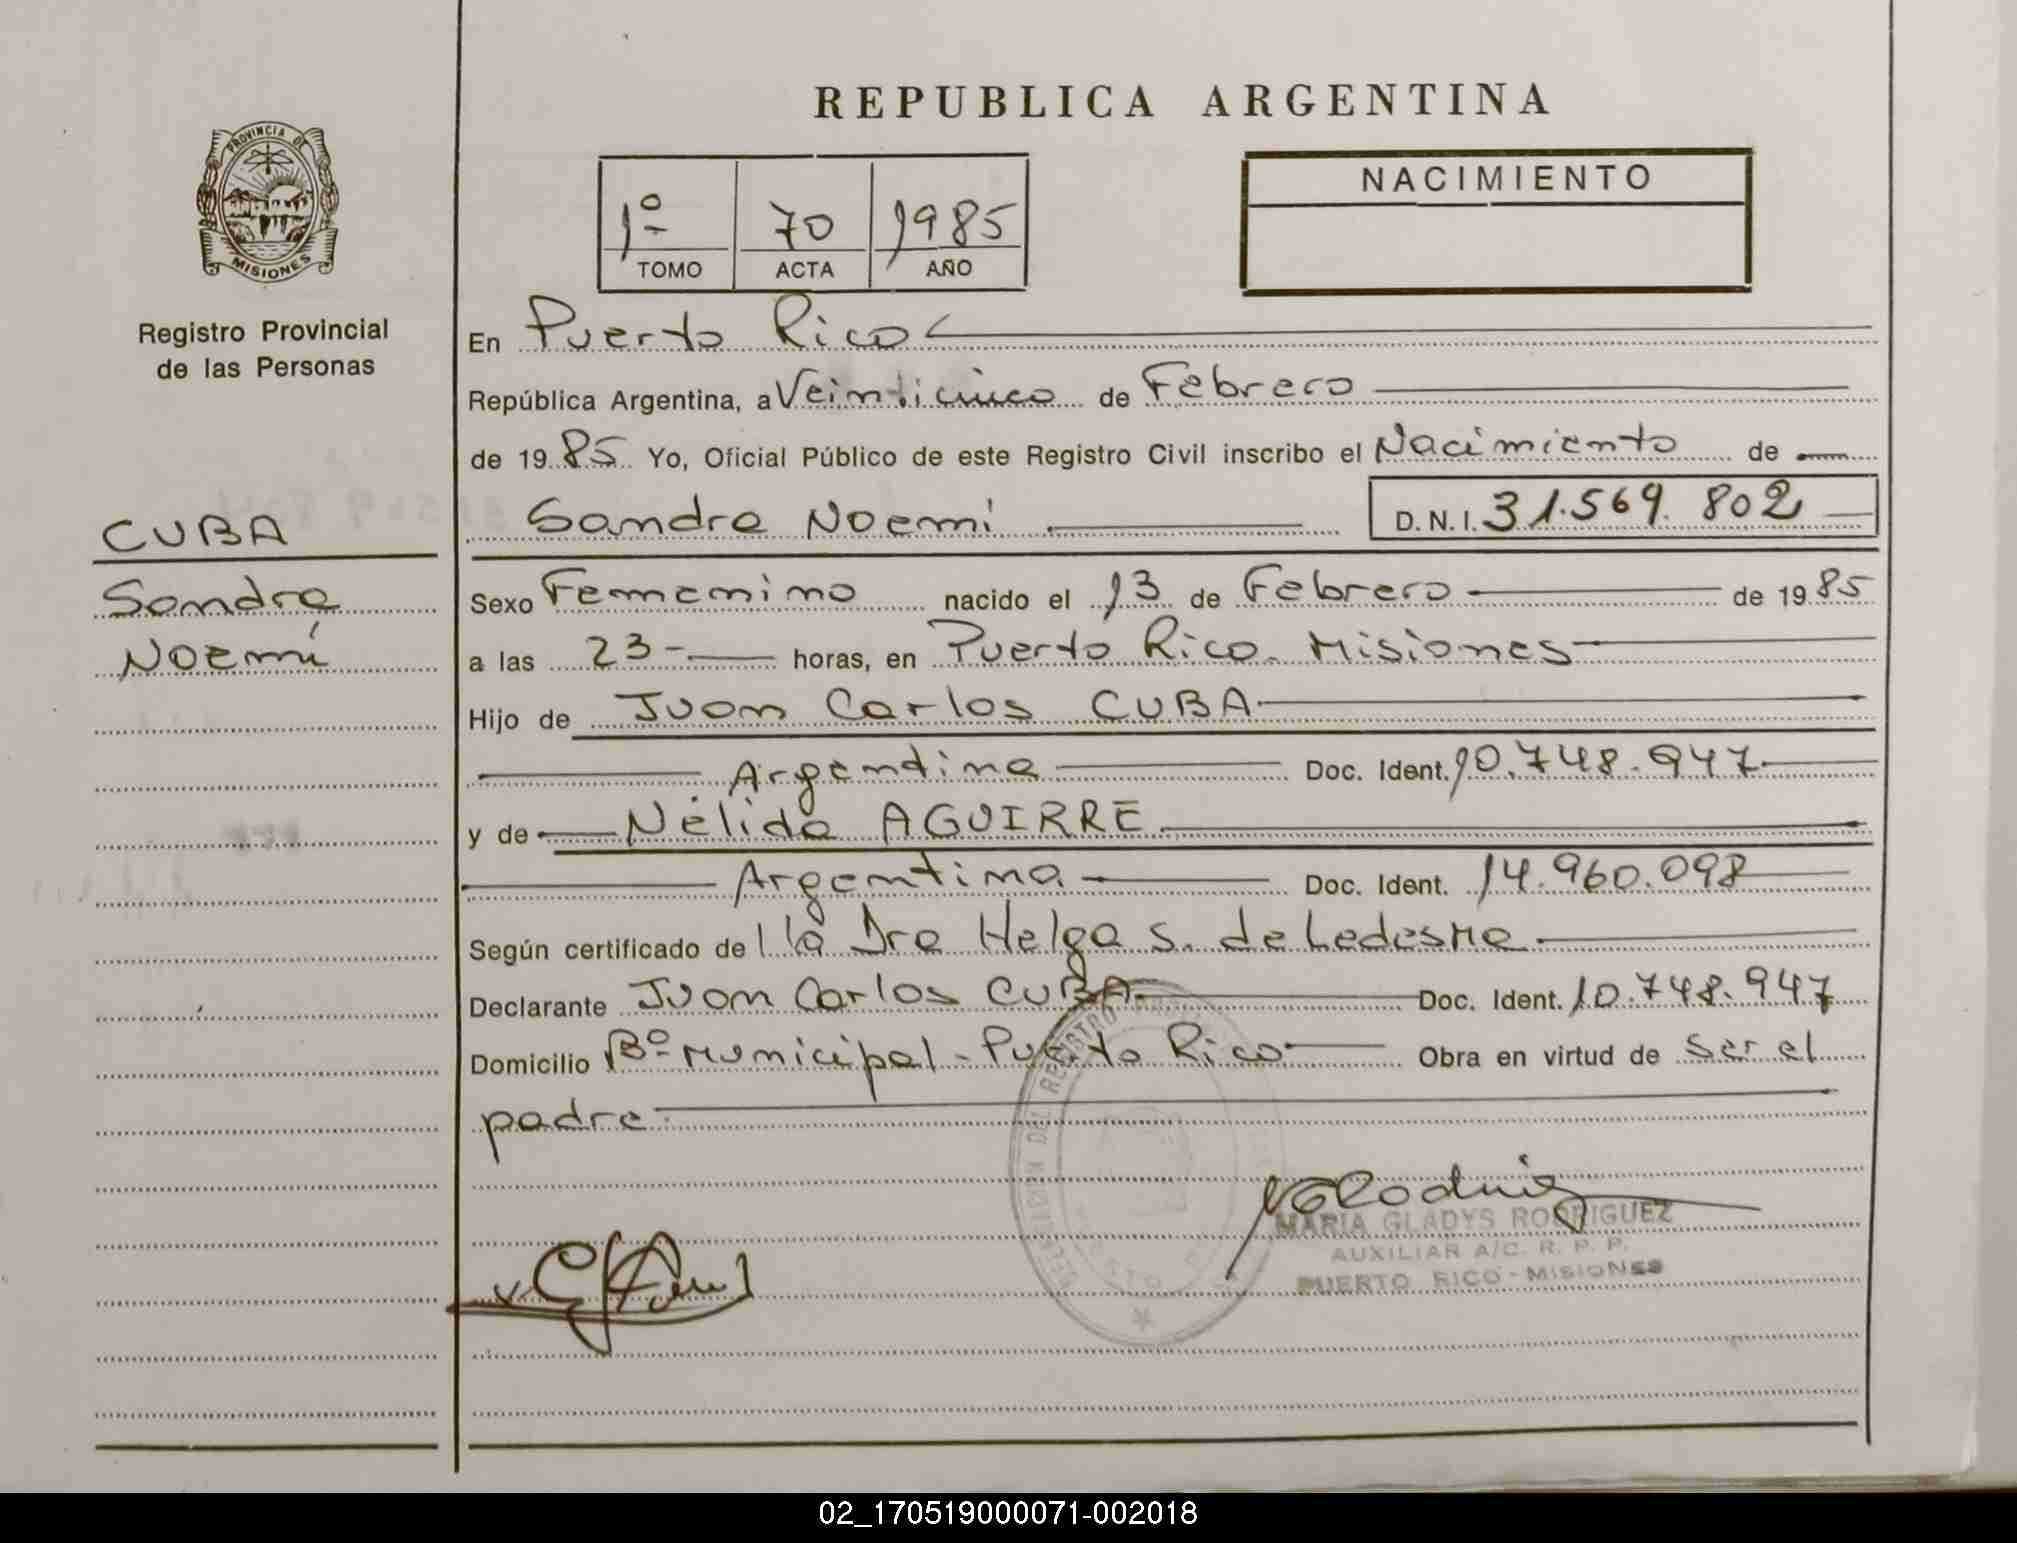 REPUBLICA ARGENTINA
PROVINCIA DE
MISIONES
Registro Provincial
de las Personas
1º 70 1985
TOMO ACTA AÑO
NACIMIENTO
CUBA
Sandra
Noemí
En Puerto Rico
República Argentina, a Veinticinco de Febrero
de 1985 Yo, Oficial Público de este Registro Civil inscribo el Nacimiento de
Sandra Noemi D.N.I. 31.569.802
Sexo Femenino nacido el 13 de Febrero de 1985
a las 23- horas, en Puerto Rico. Misiones
Hijo de Juan Carlos CUBA
Argentina Doc. Ident. 10.748.947
y de Nélida AGUIRRE
Argentina Doc. Ident. 14.960.098
Según certificado de la Dra Helga S. de Ledesma
Declarante Juan Carlos CUBA Doc. Ident. 10.748.947
Domicilio Bº Municipal - Puerto Rico Obra en virtud de ser el
padre
DEL REGISTRO
MARIA GLADYS RODRIGUEZ
AUXILIAR A/C. R. P. P.
PUERTO RICO - MISIONES
02_170519000071-002018